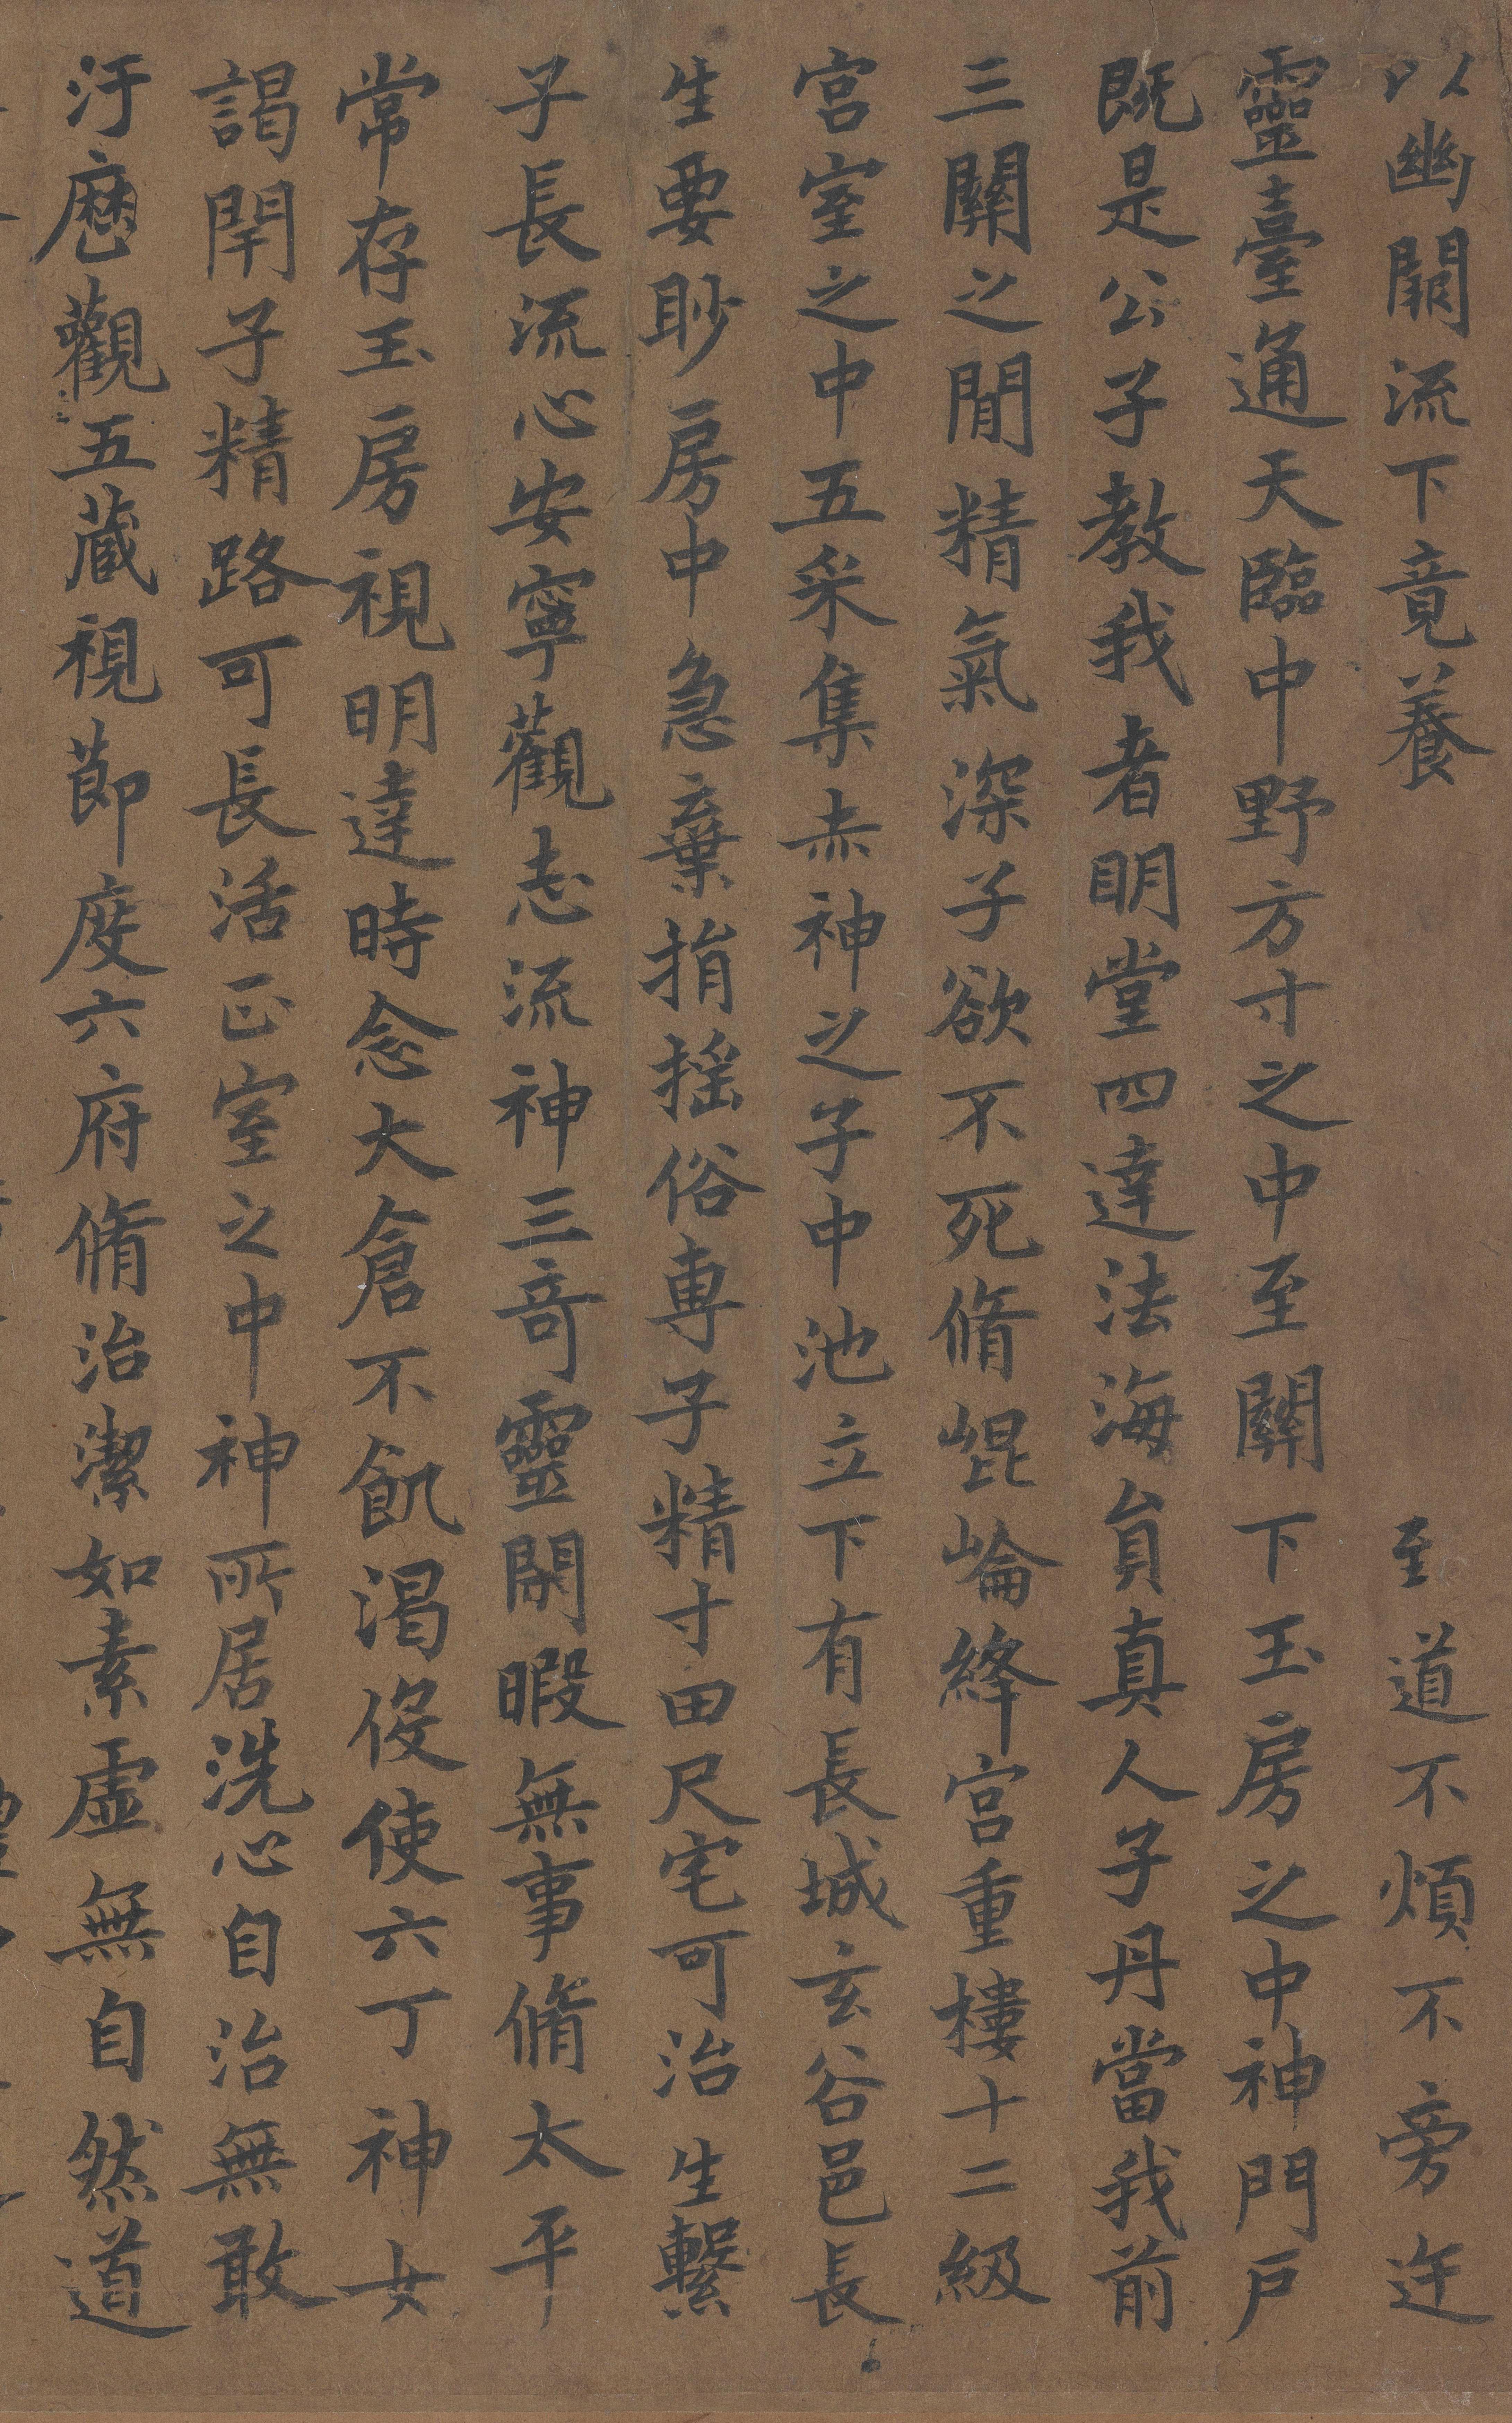 以幽闕流下竟養至道不煩不旁迕
靈臺通天臨中野方寸之中至關下玉房之中神門戶
既是公子教我者明堂四達法海員真人子丹當我前
三關之間精氣深子欲不死脩崐崘絳宮重樓十二級
宮室之中五采集赤神之子中池立下有長城玄谷邑長
生要眇房中急棄捐搖俗專子精寸田尺宅可治生繫
子長流心安寧觀志流神三奇靈閑暇無事脩太平
常存玉房視明達時念大倉不飢渴伇使六丁神女
謁閇子精路可長活正室之中神所居洗心自治無敢
汙歷觀五藏視節度六府脩治潔如素虛無自然道